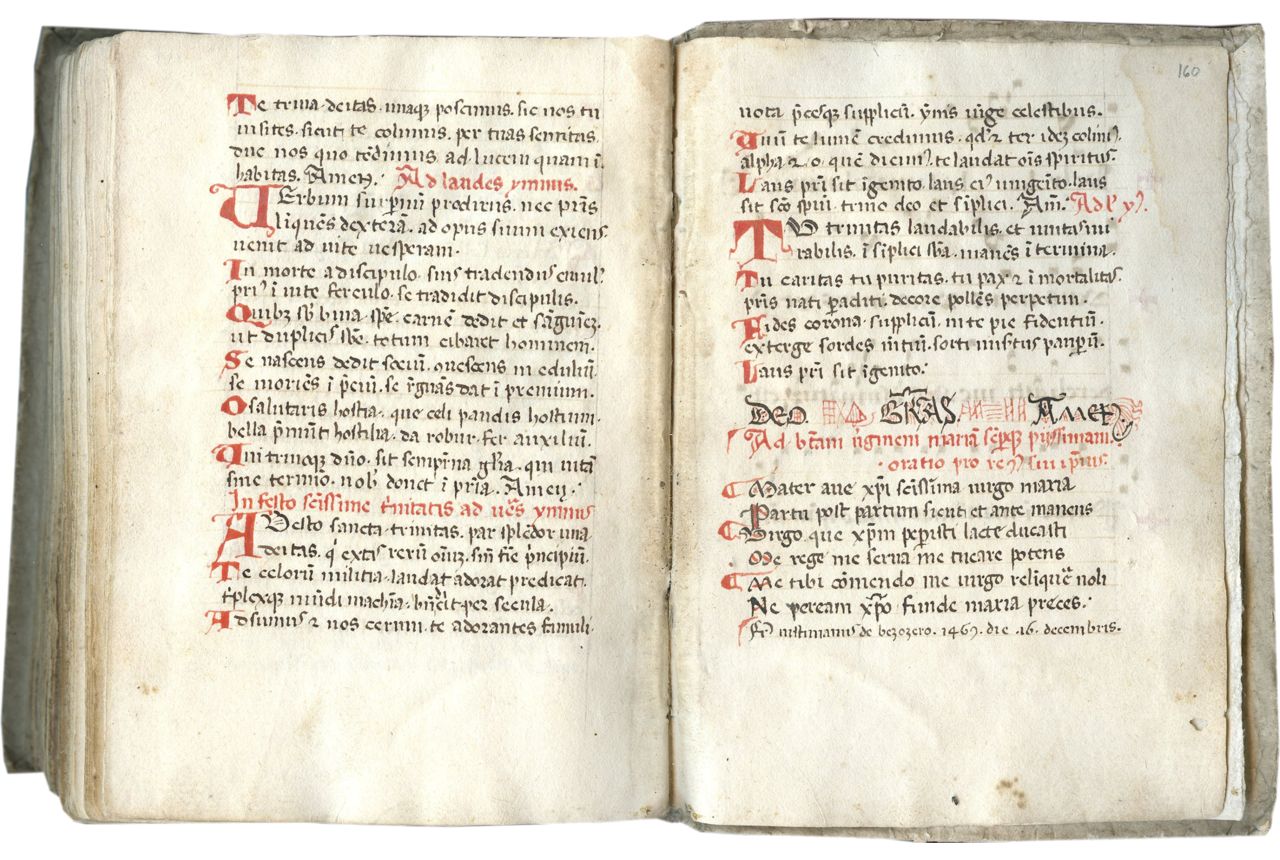 Te trina deitas. unaqꝫ poscimus. sic nos tu
uisites. sicut te colimus. per tuas semitas.
duc nos quo tēdimus. ad lucem quam ī
habitas. Amen. Ad laudes ymnus.
Uerbum supnū prodiens. nec prīs
liquens dexterā. ad opus suum exiens
uenit ad uite uesperam.
In morte a discipulo. suis tradendus emul'
pri' ī uite ferculo. se tradidit discipulis.
Quibꝫ sb bina spē. carnē dedit et sāguinē.
ut duplicis sbē. totum cibaret hominem.
Se nascens dedit sociū. conuescens in eduliū
se moriēs ī p̄ciū. se rgnās dat ī premium.
O salutaris hostia. que celi pandis hostium.
bella p̄mūt hostilia. da robur. fer auxiliū.
Uni trinoqꝫ dño. sit sempitna glīa. qui uitā
sine termīo. nob' donet ī pr̄ia. Amen.
In festo scissime trinitatis ad uēs ymnus
Adesto sancta trinitas. par splēdor una
deitas. q extis rerū oīuꝫ. sin fīe pncipiū.
Te celorū militia. laudat adorat predicat.
tplexqꝫ mūdi machīa. bndicit per secula.
Adsumus ⁊ nos cernui. te adorantes famuli.
160
uota pcesqꝫ supplicū. ymis iūge celestibus.
Unū te lumē credimus. qd ⁊ ter ideꝫ colim'.
alpha ⁊ o. quē dicim'. te laudat oīs spiritus.
Laus pr̄i sit īgenito. laus ei' unigeīto. laus
sit sc̄o spiui. trino deo et sīplici. Am̄. Ad
TU trinitas laudabilis. et unitas mi
rabilis. ī sīplici sbā. manēs ī termina.
Tu caritas tu puritas. tu pax ⁊ īmortalitas.
pris nati paditi. decore pollēs perpetim.
Fides corona supplicū. in te pie fidentiū.
exterge sordes mētiū. sorti misertus paupūm.
Laus pr̄i sit īgenito.
DEO GRAS AMEN
Ad btām uirginem mariā semperqꝫ piissimam.
oratio pro
Mater aue xp̄i scissima uirgo maria
Partu post partum sicut et ante manens
Virgo que xp̄m peperisti lacte ducasti
Me rege me serua me tueare potens
Me tibi cōmendo me uirgo relinquē noli
Ne peream xp̄o funde maria preces.
iustinianus de bezozero. 1467. die. 16. decembris.